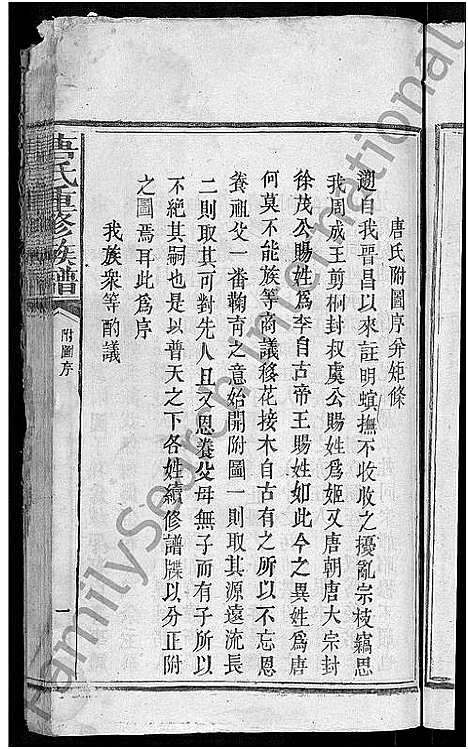 唐氏附圖序并矩條
遡自我晉昌以來証明螟撫不收收之擾亂宗枝竊思
我周成王剪桐封叔虞公賜姓爲姬又唐朝唐大宗封
徐茂公賜姓爲李自古帝王賜姓如此今之異姓爲唐
何莫不能族等商議移花接木自古有之所以不忘恩
養祖父一番鞠育之意始開附圖一則取其源遠流長
二則取其可對先人且又恩養父母無子而有子所以
不絶其嗣也是以普天之下各姓續修譜牒以分正附
之圖焉耳此爲序
我族衆等酌議
唐氏重修族譜
附圖序
一
FamilySearch International